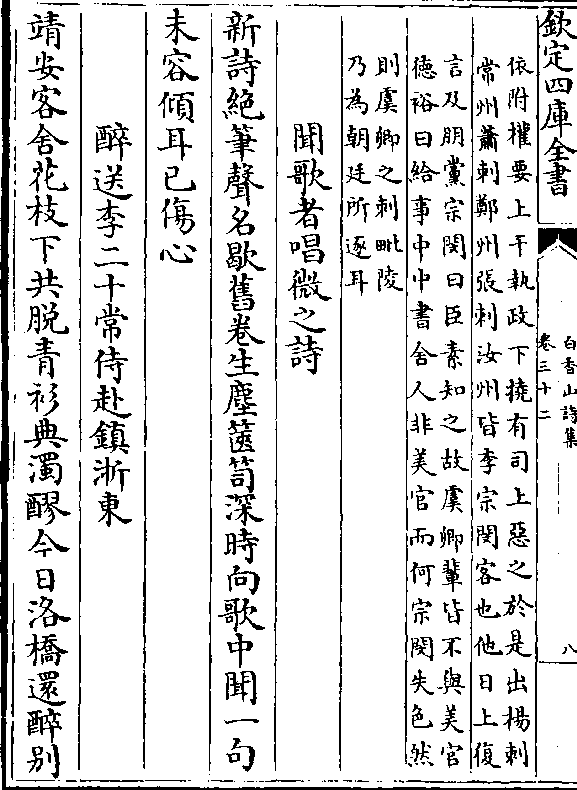 欽定四庫全書
白香山詩集
卷三十二
八
依附權要上干執政下撓有司上惡之於是出楊刺
常州蕭刺鄭州張刺汝州皆李宗閔客也他日上復
言及朋黨宗閔曰臣素知之故虞卿輩皆不與美官
德裕曰給事中中書舍人非美官而何宗閔失色然
則虞卿之刺毗陵
乃為朝廷所逐耳
聞歌者唱微之詩
新詩絶筆聲名歇舊卷生塵篋笥深時向歌中聞一句
未容傾耳已傷心
醉送李二十常侍赴鎮浙東
靖安客舍花枝下共脫青衫典濁醪今日洛橋還醉别